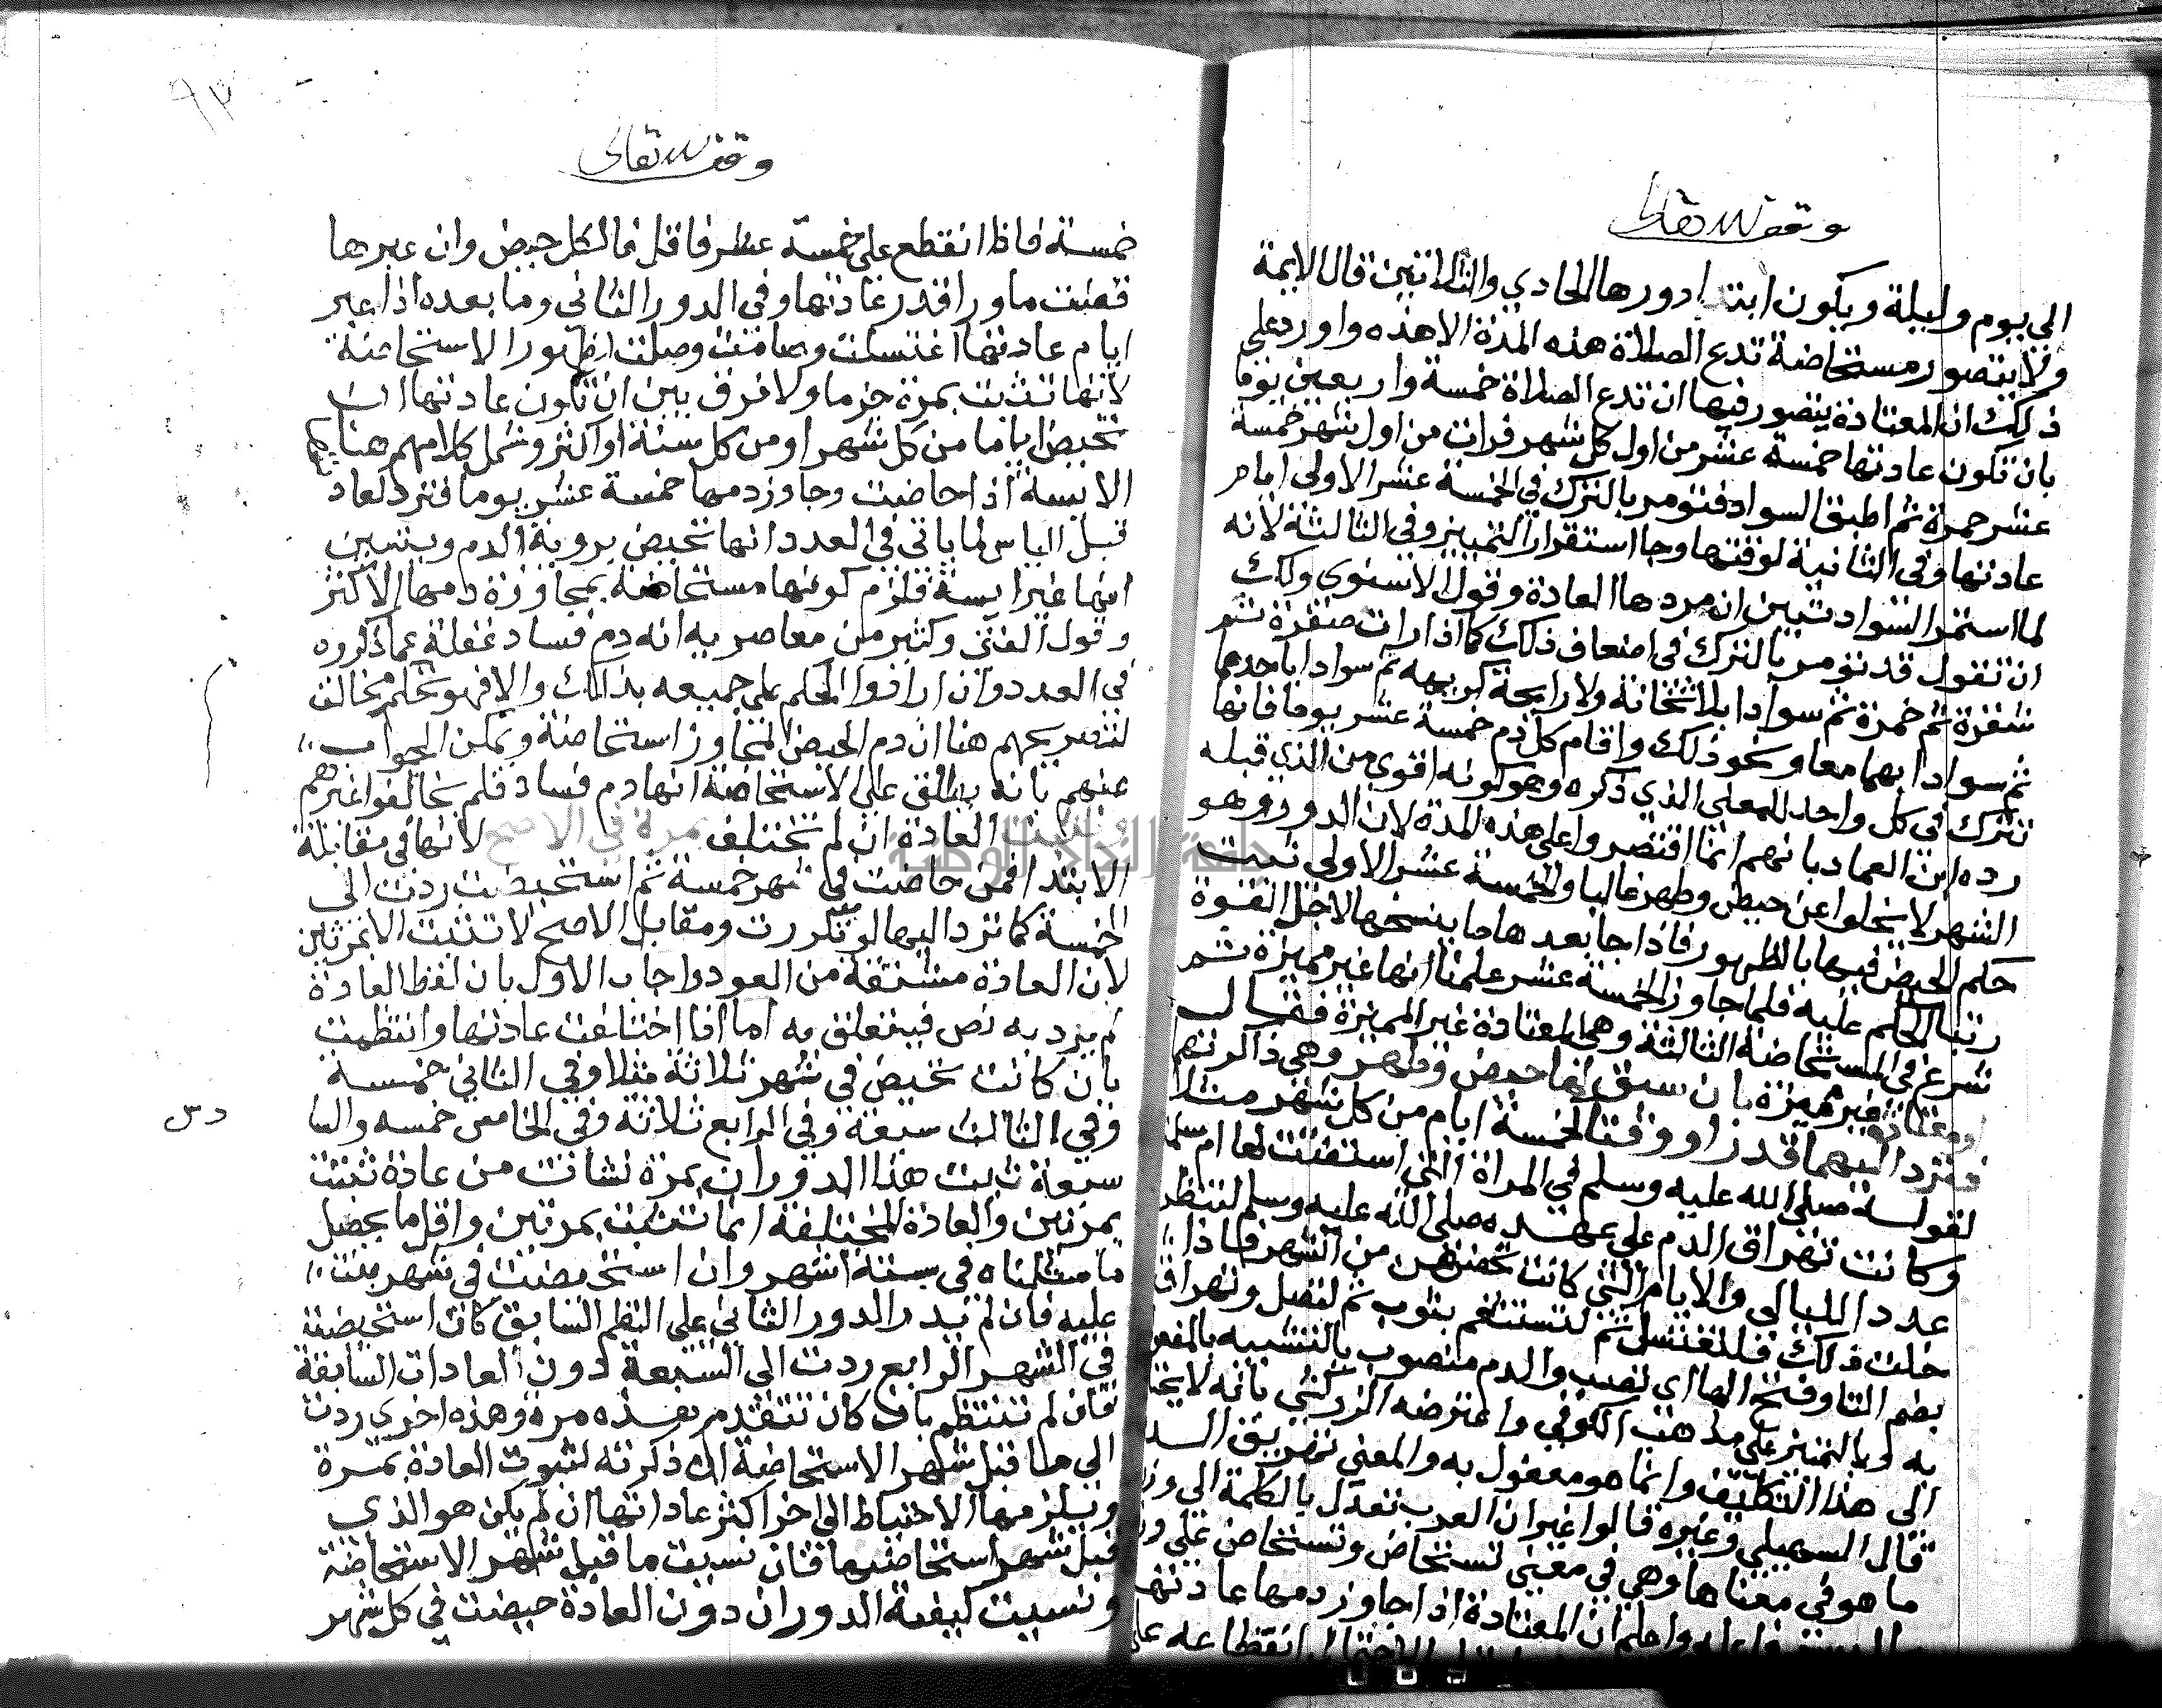 وقف لله تعالى
الى يوم وليلة ويكون ابتدا دورها الحادي والثلاثين قال الايمة
ولا يتصور مستحاضة تدع الصلاة هذه المدة الا هذه واورد على
ذلك ان المعتادة يتصور فيها ان تدع الصلاة خمسة واربعين يوما
بان تكون عادتها خمسة عشر من اول كل شهر فرات من اول شهر خمسة
عشر حمرة ثم اطبق السواد فتومر بالترك في الخمسة عشر الاولى ايام
عادتها وفي الثانية لوقتها وجا استقرار التمييز وفي الثالثة لانه
لما استمر السواد تبين ان مردها العادة وقول الاسنوي ولك
ان تقول قد تومر بالترك في اضعاف ذلك كما اذا رات صفرة ثم
شقرة ثم حمرة ثم سوادا بلا ثخانة ولا رايحة كريهه ثم سوادا باحدهما
ثم سوادا بهما معا ونحو ذلك واقام كل دم خمسة عشر يوما فانها
تترك في كل واحد للمعنى الذي ذكره وهو كونه اقوى من الذي قبله
رده ابن العماد بانهم انما اقتصروا على هذه المدة لان الدور وهو
الشهر لا يخلوا عن حيض وطهر غالبا والخمسة عشر الاولى ثبت
حكم الحيض فيها بالظهور فاذا جا بعدها ما ينسخها لاجل القوة
رتبنا الحكم عليه فلما جاوز الخمسة عشر علمنا انها غير مميزة ثم
شرع في المستحاضة الثالثة وهي المعتادة غير المميزة فقال
او معتادة غير مميزة بان سبق لها حيض وطهر وهي ذاكرتهم
فترد اليهما قدرا ووقتا لخمسة ايام من كل شهر مثلا
لقوله صلى الله عليه وسلم في المراة التي استفتت لها ام سلمة
وكانت تهراق الدم على عهده صلى الله عليه وسلم لتنظر
عدد الليالي والايام التي كانت تحيضهن من الشهر فاذا
خلت ذلك فلتغتسل ثم لتستثفر بثوب ثم لتصل وتهراق
بضم التا وفتح الها اي تصب والدم منصوب بالتشبيه بالمفعول
به او بالتمييز على مذهب الكوفي واعترضه الزركشي بانه لا يحتاج
الى هذا التكليف وانما هو مفعول به والمعنى تهريق الدم
قال السهيلي وغيره قالوا غير ان العرب تعدل بالكلمة الى وزن
ما هو في معناها وهي في معنى تستحاض وتستحاض على وزن
واعلم ان المعتادة اذا جاوز دمها عادتها
انقطاعه على
٩٣
وقف لله تعالى
خمسة فاذا انقطع على خمسة عشر فاقل فالكل حيض وان عبرها
قضت ما ورا قدر عادتها وفي الدور الثاني وما بعده اذا عبر
ايام عادتها اغتسلت وصامت وصلت لظهور الاستحاضة
لانها تثبت بمرة جزما ولا فرق بين ان تكون عادتها ان
تحيض اياما من كل شهر او من كل سنة او اكثر وشمل كلامهم هنا
الايسة اذا حاضت وجاوز دمها خمسة عشر يوما فترد لعاد
قبل الياس لما ياتي في العدد انها تحيض بروية الدم ويتبين
انها غير ايسة فلزم كونها مستحاضة بمجاوزة دمها الاكثر
وقول الفتى وكثير من معاصريه انه دم فساد غفلة عما ذكروه
في العدد وان ارادوا الحكم على جميعه بذلك والا فهو تحكم مخالف
لتصريحهم هنا ان دم الحيض المتجاوز استحاضة ويمكن الجواب
عنهم بانه يطلق على الاستحاضة انها دم فساد فلم يخالفوا غيرهم
وتثبت العادة ان لم تختلف بمرة في الاصح لانها في مقابلة
الابتدا فمن حاضت في شهر خمسة ثم استحيضت ردت الى
الخمسة كما ترد اليها لو تكررت ومقابل الاصح لا تثبت الا بمرتين
لان العادة مشتقة من العود واجاب الاول بان لفظ العادة
لم يرد به نص فيتعلق به اما اذا اختلفت عادتها وانتظمت
بان كانت تحيض في شهر ثلاثة مثلا وفي الثاني خمسة
وفي الثالث سبعة وفي الرابع ثلاثة وفي الخامس خمسه والسا
دس
سبعة ثبت هذا الدوران بمرة نشات من عادة ثبتت
بمرتين والعادة المختلفة انما تثبت بمرتين واقل ما يحصل
ما مثلناه في ستة اشهر وان استحيضت في شهر بنت
عليه فان لم يدر الدور الثاني على النظم السابق كان استحيضت
في الشهر الرابع ردت الى السبعة دون العادات السابقة
فان لم تنتظم بان كان تتقدم هذه مرة وهذه اخرى ردت
الى ما قبل شهر الاستحاضة ان ذكرته لثبوت العادة بمرة
ويلزمها الاحتياط الى اخر اكثر عاداتها ان لم يكن هو الذي
قبل شهر استحاضتها فان نسيت ما قبل شهر الاستحاضة
ونسيت كيفية الدوران دون العادة حيضت في كل شهر